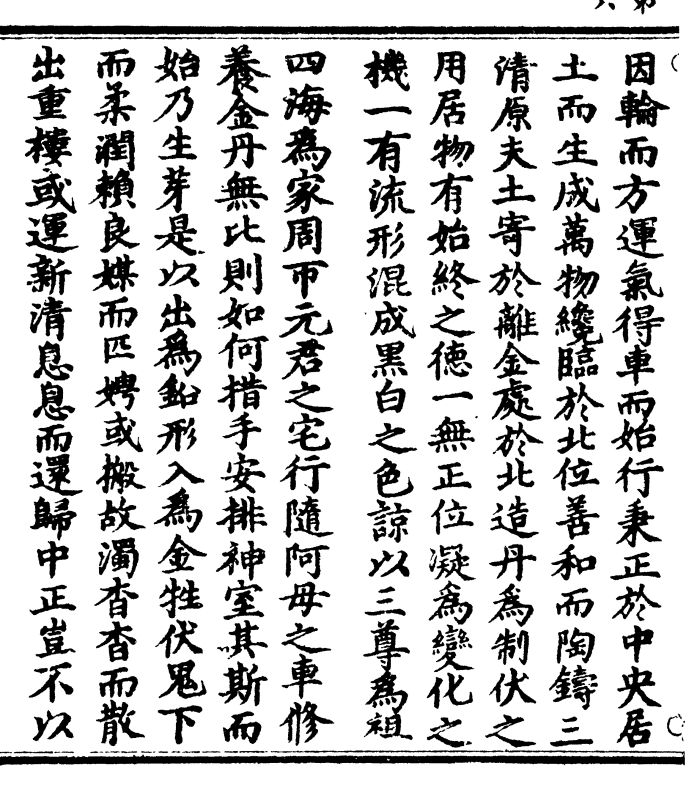 因輪而方運氣得車而始行秉正於中央居
土而生成萬物纔臨於北位善和而陶鑄三
清原夫土寄於離金處於北造丹爲制伏之
用居物有始終之德一無正位凝爲變化之
機一有流形混成黑白之色諒以三尊爲祖
四海爲家周帀元君之宅行隨阿母之車修
養金丹無比則如何措手安排神室其斯而
始乃生芽是以出爲鉛形入爲金牲伏鬼下
而柔潤賴良媒而匹娉或搬故濁杳杳而散
出重樓或運新清息息而還歸中正豈不以